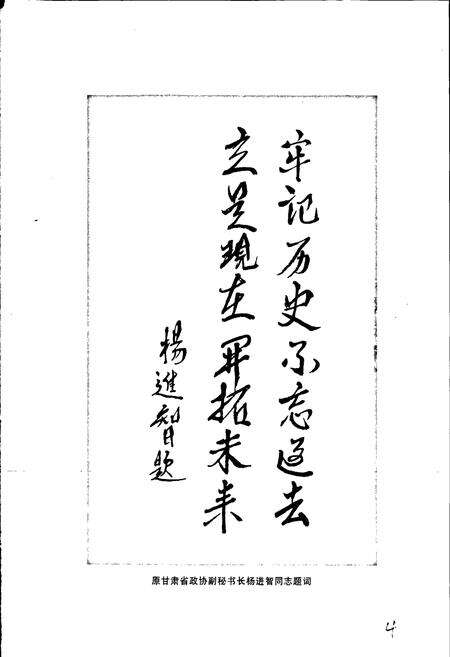 牢记历史不忘过去
立足现在开拓未来
杨進智题
原甘肃省政协副秘书长杨进智同志题词
4